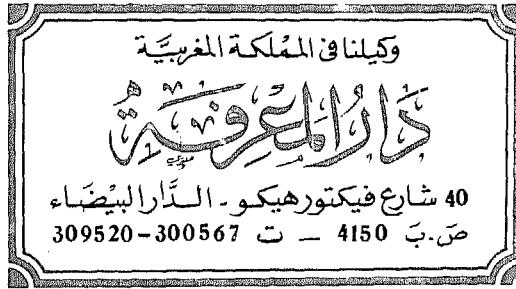 وكيلنا في المملكة المغربيَّة
دَارُ المَعْرِفَةِ
40 شارع فيكتور هيكو ـ الـدَّار البيْضَاء
صَ.بَ 4150 ـ ت 300567-309520